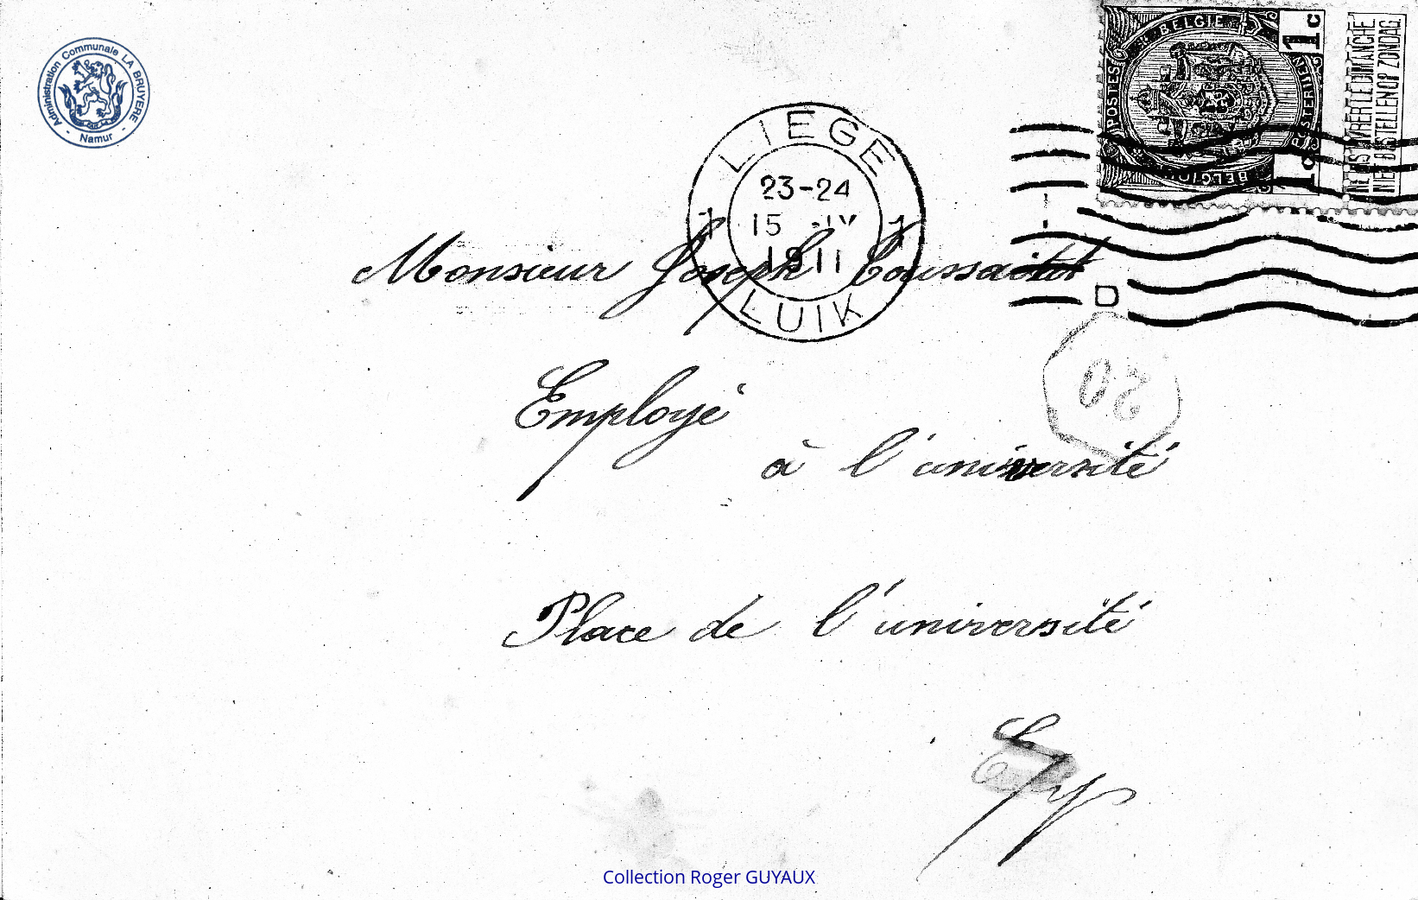 Administration Communale LA BRUYERE - Namur -
POSTES BELGIE 1c
BELGIQUE 1c POSTERIJEN
NE PAS LIVRER LE DIMANCHE
NIET BESTELLEN OP ZONDAG
LIEGE
23-24
1 15 IV 1
1911
LUIK
Monsieur Joseph Toussaint
D
20
Employé
à l'université
Place de l'université
Collection Roger GUYAUX